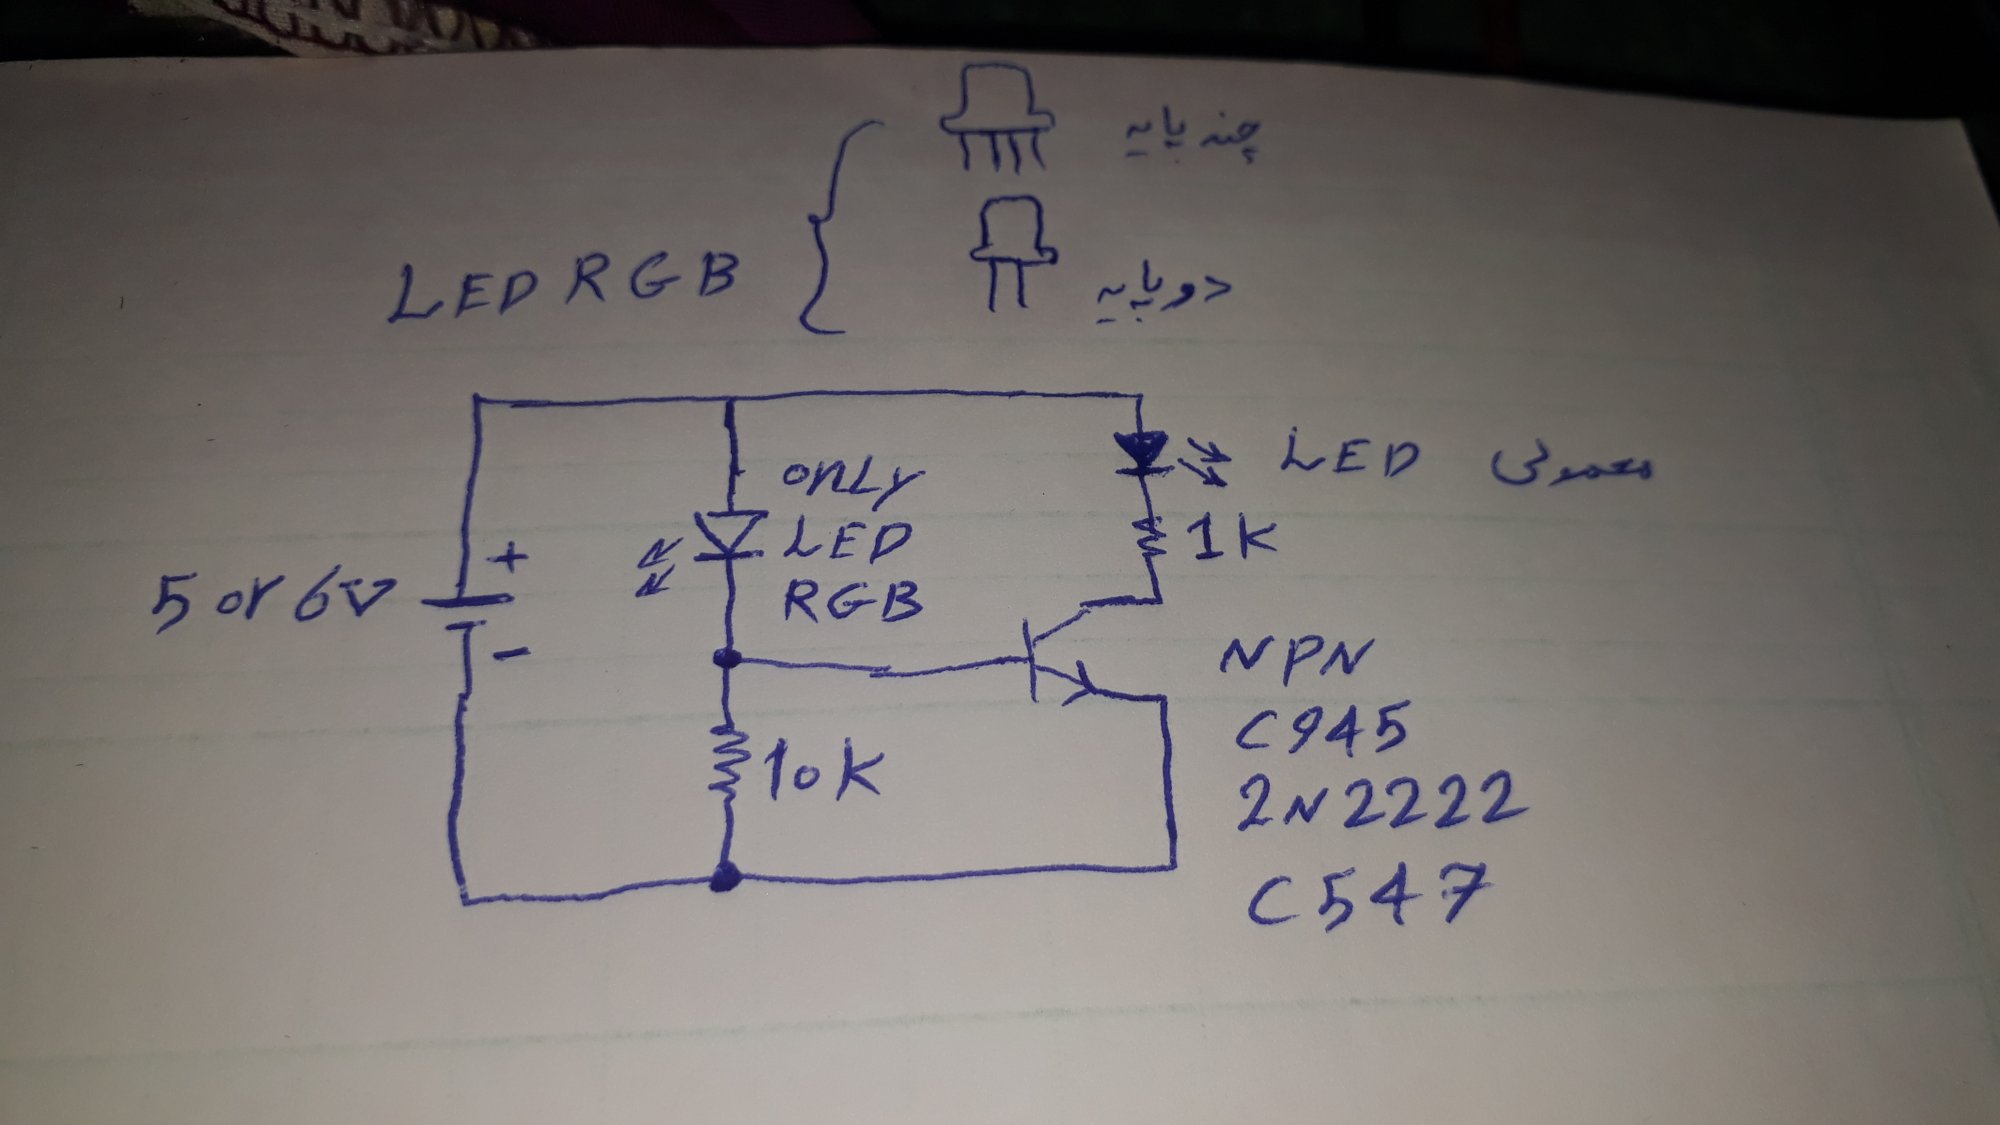 چند پایه
LED RGB
دو پایه
only
LED
RGB
LED معمولی
1K
5 or 6V
+
-
10K
NPN
C945
2N2222
C547